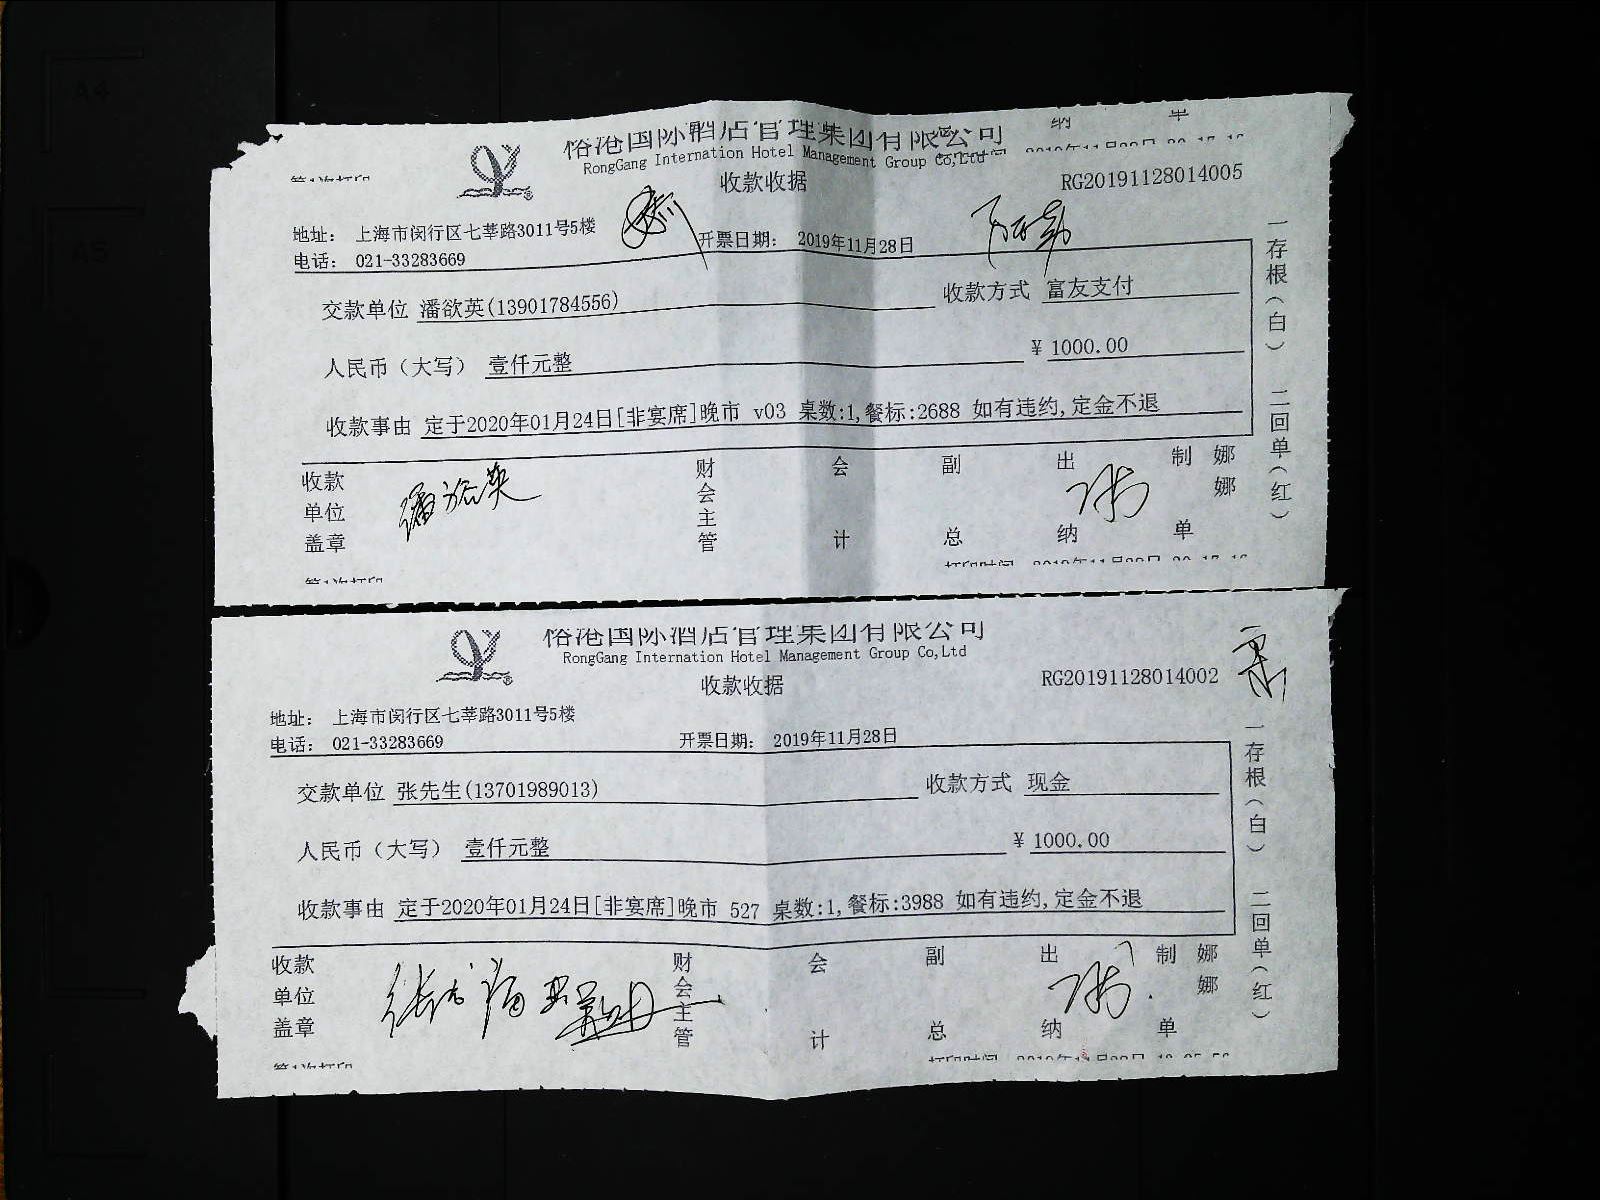 纳 单
裕港国际酒店管理集团有限公司
RongGang Internation Hotel Management Group Co,Ltd
第1次打印
收款收据
RG20191128014005
地址： 上海市闵行区七莘路3011号5楼
电话： 021-33283669
开票日期： 2019年11月28日
交款单位 潘欲英(13901784556) 收款方式 富友支付
人民币（大写） 壹仟元整 ¥ 1000.00
收款事由 定于2020年01月24日[非宴席]晚市 v03 桌数:1,餐标:2688 如有违约,定金不退
收款单位盖章 财会主管 会计 副总 出纳 制单 娜娜
一存根（白） 二回单（红）
第1次打印 打印时间
裕港国际酒店管理集团有限公司
RongGang Internation Hotel Management Group Co,Ltd
收款收据
RG20191128014002
地址： 上海市闵行区七莘路3011号5楼
电话： 021-33283669
开票日期： 2019年11月28日
交款单位 张先生(13701989013) 收款方式 现金
人民币（大写） 壹仟元整 ¥ 1000.00
收款事由 定于2020年01月24日[非宴席]晚市 527 桌数:1,餐标:3988 如有违约,定金不退
收款单位盖章 财会主管 会计 副总 出纳 制单 娜娜
一存根（白） 二回单（红）
第1次打印 打印时间